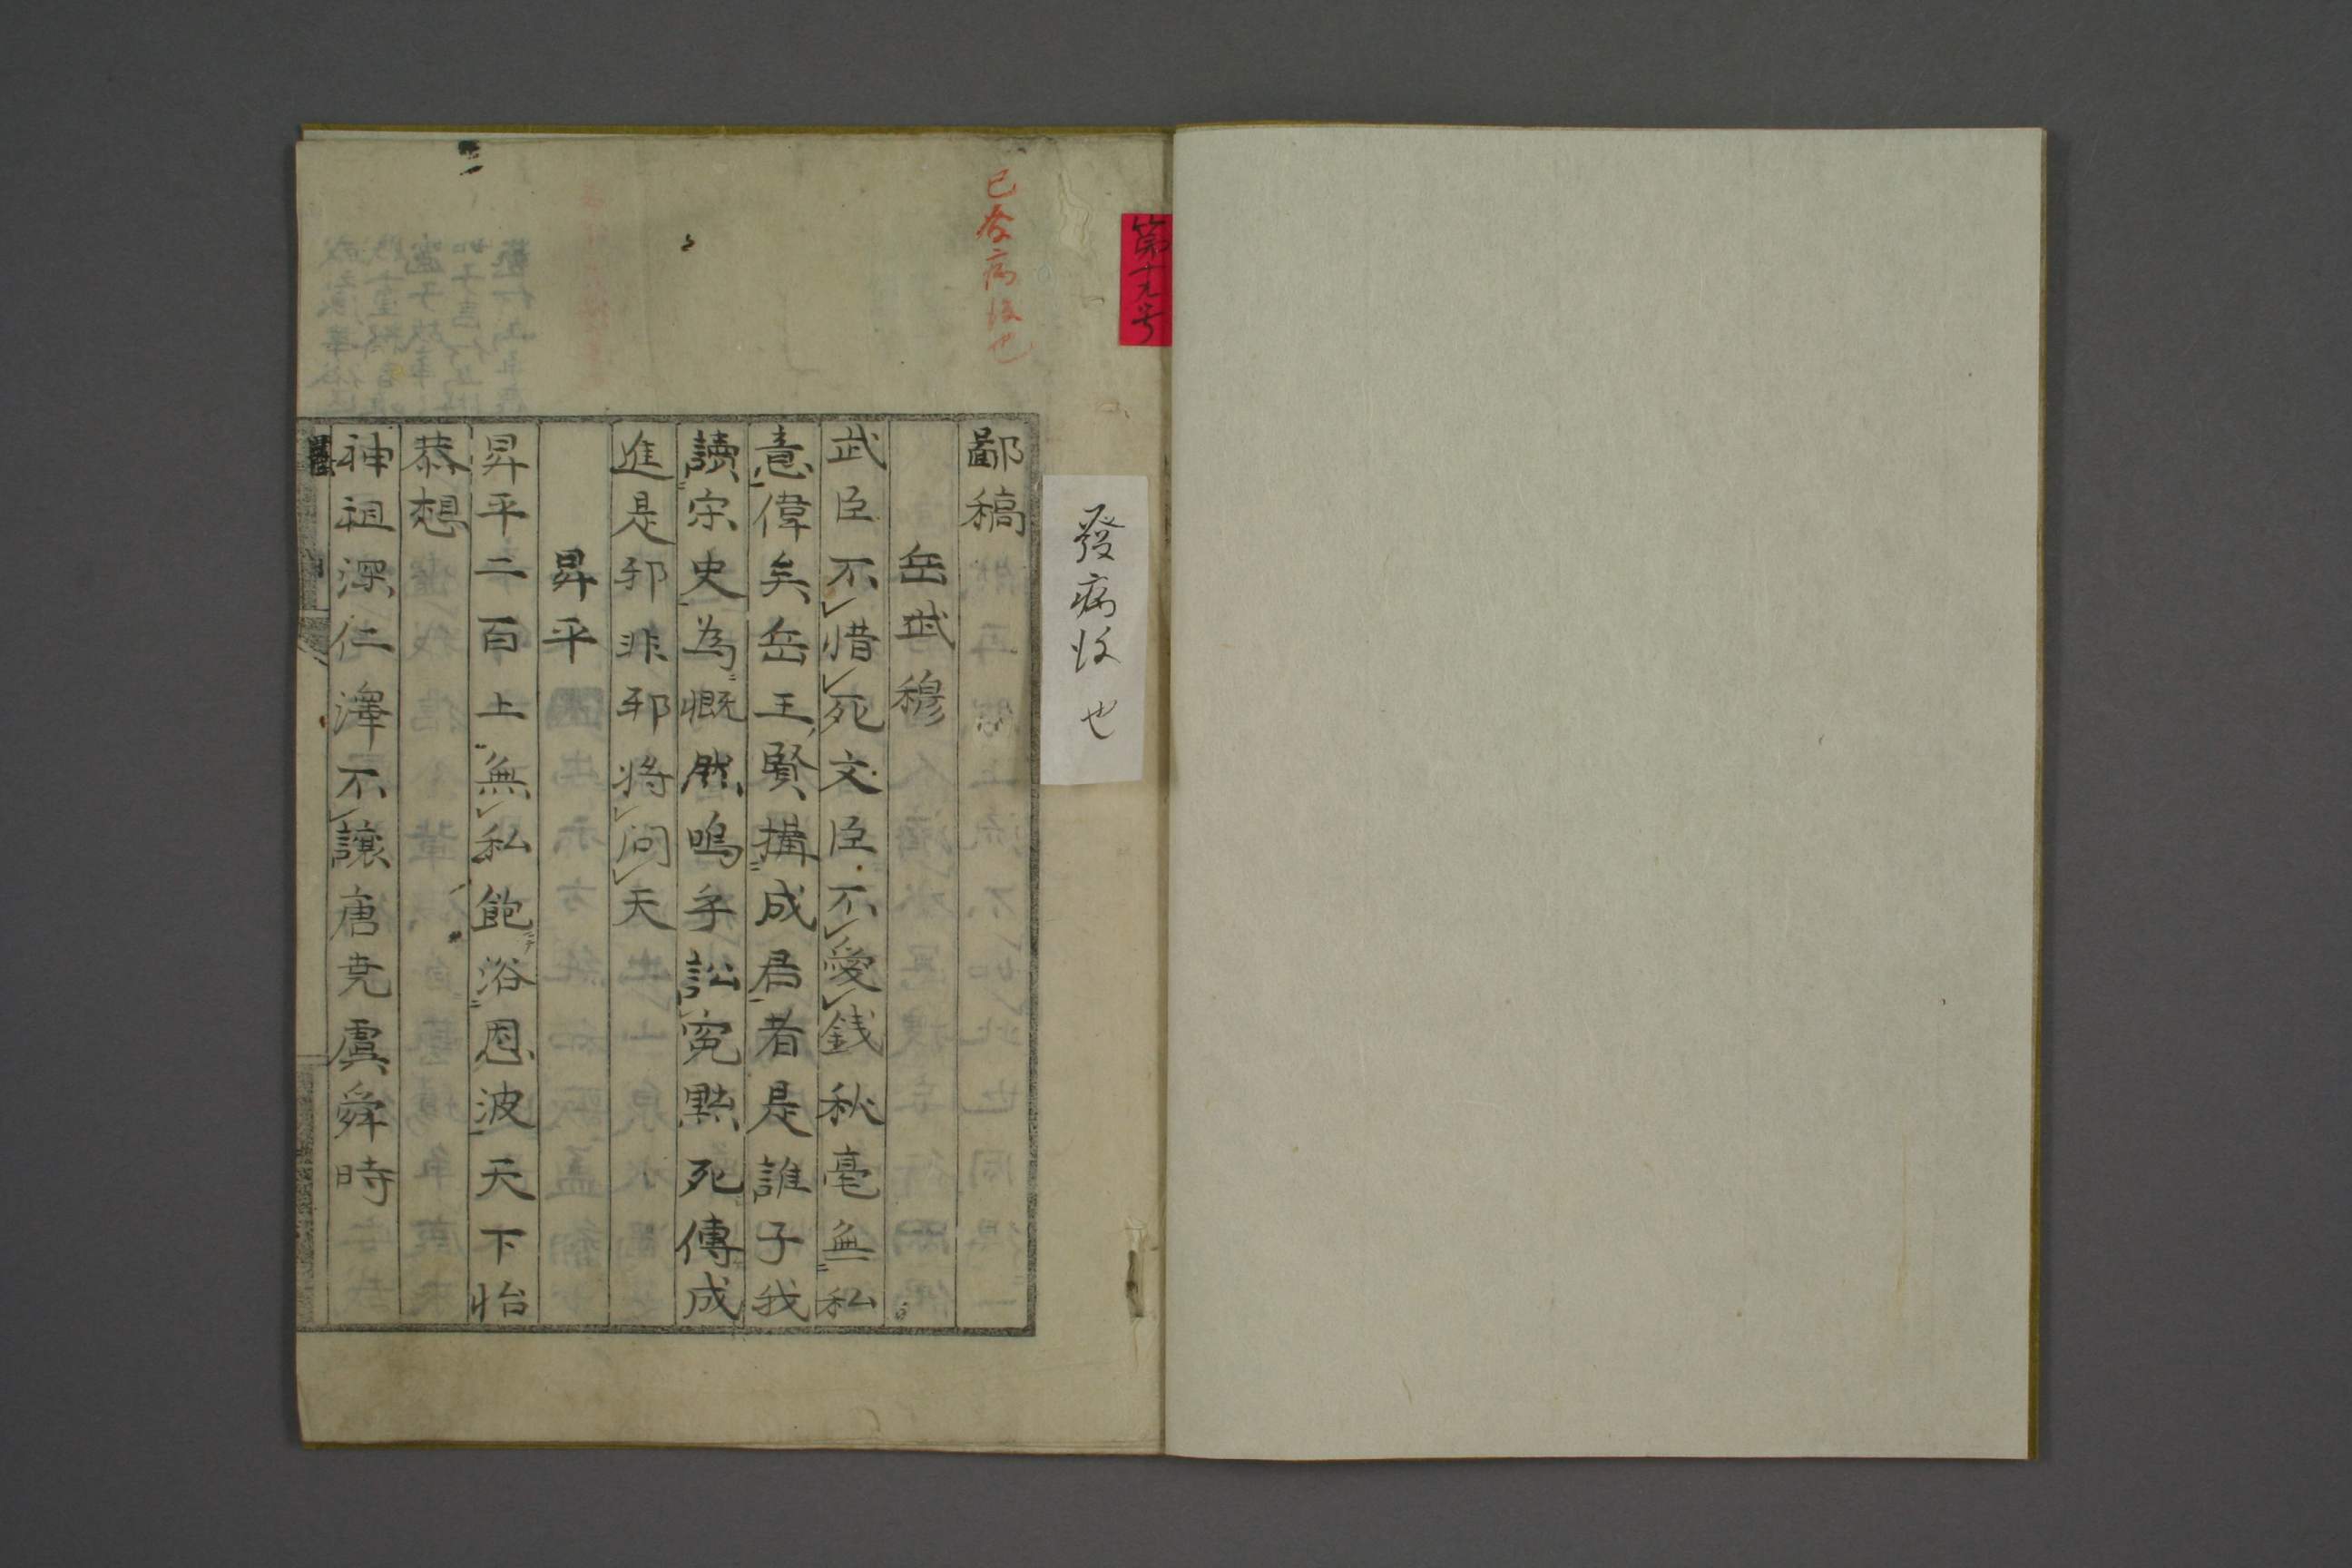 第十九号
已発病後也
發病後也
鄙稿
岳武穆
武臣不惜死文臣不愛銭秋毫無私
意偉矣岳王賢搆成君者是誰子我
讀宋史為慨然嗚乎訟寃黙死傳成
進是邪非邪将問天
昇平
昇平二百上無私飽浴恩波天下怡
恭想
神祖深仁澤不讓唐尭虞舜時